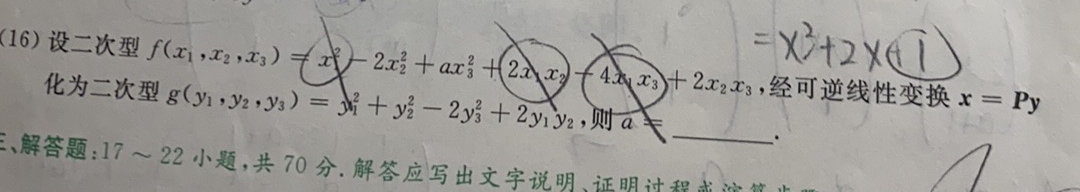 = x³+2x+1
(16) 设二次型 f(x₁,x₂,x₃) = x₁² − 2x₂² + ax₃² + 2x₁x₂ − 4x₁x₃ + 2x₂x₃,经可逆线性变换 x = Py
化为二次型 g(y₁,y₂,y₃) = y₁² + y₂² − 2y₃² + 2y₁y₂,则 a = ______.
三、解答题:17 ～ 22 小题,共 70 分.解答应写出文字说明、证明过程或演算步